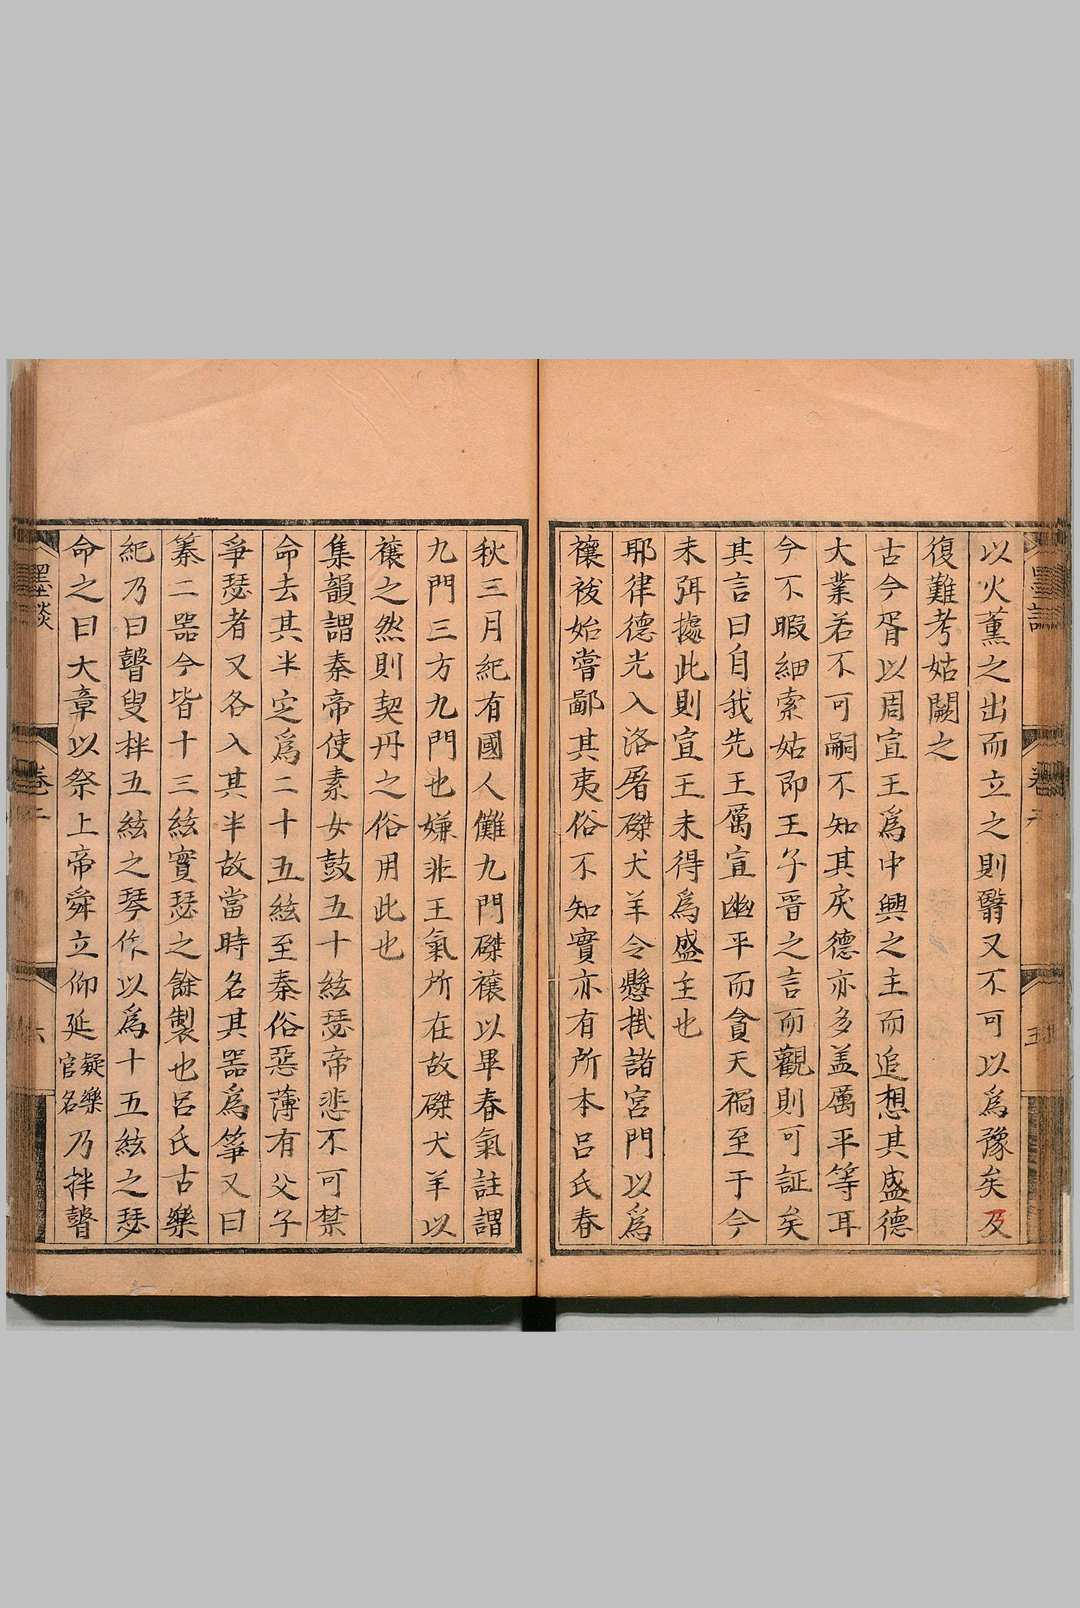 以火薰之出而立之則翳又不可以為豫矣及
復難考姑闕之
古今胥以周宣王為中興之主而追想其盛德
大業若不可嗣不知其戾德亦多盖厲平等耳
今不暇細索姑即王子晉之言而觀則可証矣
其言曰自我先王厲宣幽平而貪天禍至于今
未弭據此則宣王未得為盛主也
耶律德光入洛屠磔犬羊令懸掛諸宮門以為
禳祓始嘗鄙其夷俗不知實亦有所本呂氏春
秋三月紀有國人儺九門磔禳以畢春氣註謂
九門三方九門也嫌非王氣所在故磔犬羊以
禳之然則契丹之俗用此也
集韻謂秦帝使素女鼓五十絃瑟帝悲不可禁
命去其半定為二十五絃至秦俗惡薄有父子
爭瑟者又各入其半故當時名其器為筝又曰
纂二器今皆十三絃實瑟之餘製也呂氏古樂
紀乃曰瞽叟拌五絃之琴作以為十五絃之瑟
命之曰大章以祭上帝舜立仰延疑樂官名乃拌瞽
墨談
卷二
六